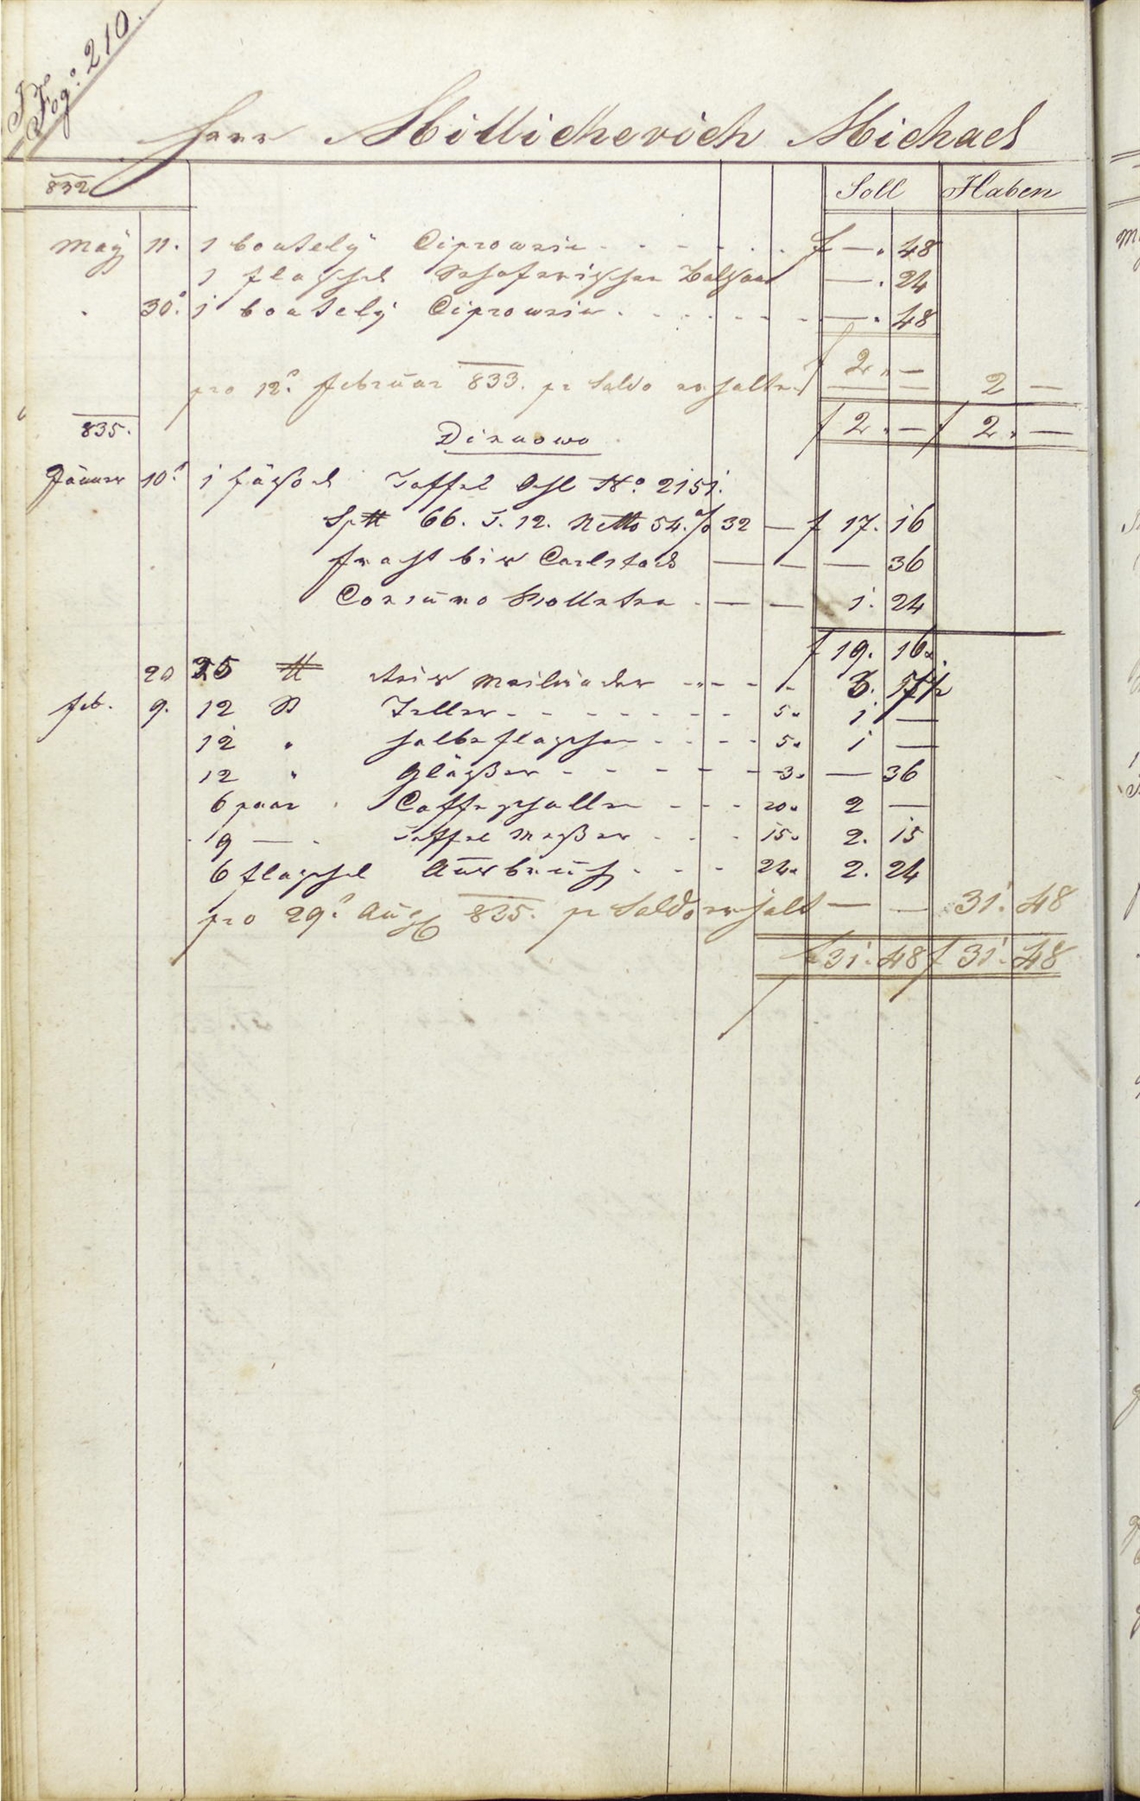 Fog: 210.
Herr Millichevich Michael
832
Soll Haben
May 11. 1 boutely Ciprowein - - - f — . 48
1 flaschel Balsam — . 24
30. 1 boutely Ciprowein - - - — . 48
f 2 . —
pro 12. Februar 833. pr Saldo erhalten 2 —
f 2 . — f 2 . —
835.
Di nuowo
Jänner 10. 1 fäßel Taffel Öhl No 2151.
Sp℔ 66. T. 12. Netto 54. % 32 — f 17. 16
fracht bis Carlstad — — — 36
Consumo — — 1. 24
f 19. 16.
20 25 ℔ Reis Mailänder - - - 3. 17½
feb. 9. 12 Teller - - - 5. 1 —
12 " halbe flaschen - - - 5. 1 —
12 " Gläßer - - - 3. — 36
6 paar Caffeschallen - - - 20. 2 —
9 — Taffel Meßer - - - 15. 2. 15
6 flaschel Ausbruch - - - 24. 2. 24
pro 29. Aug 835. pr Saldo erhalt — — 31. 48
f 31. 48 f 31. 48